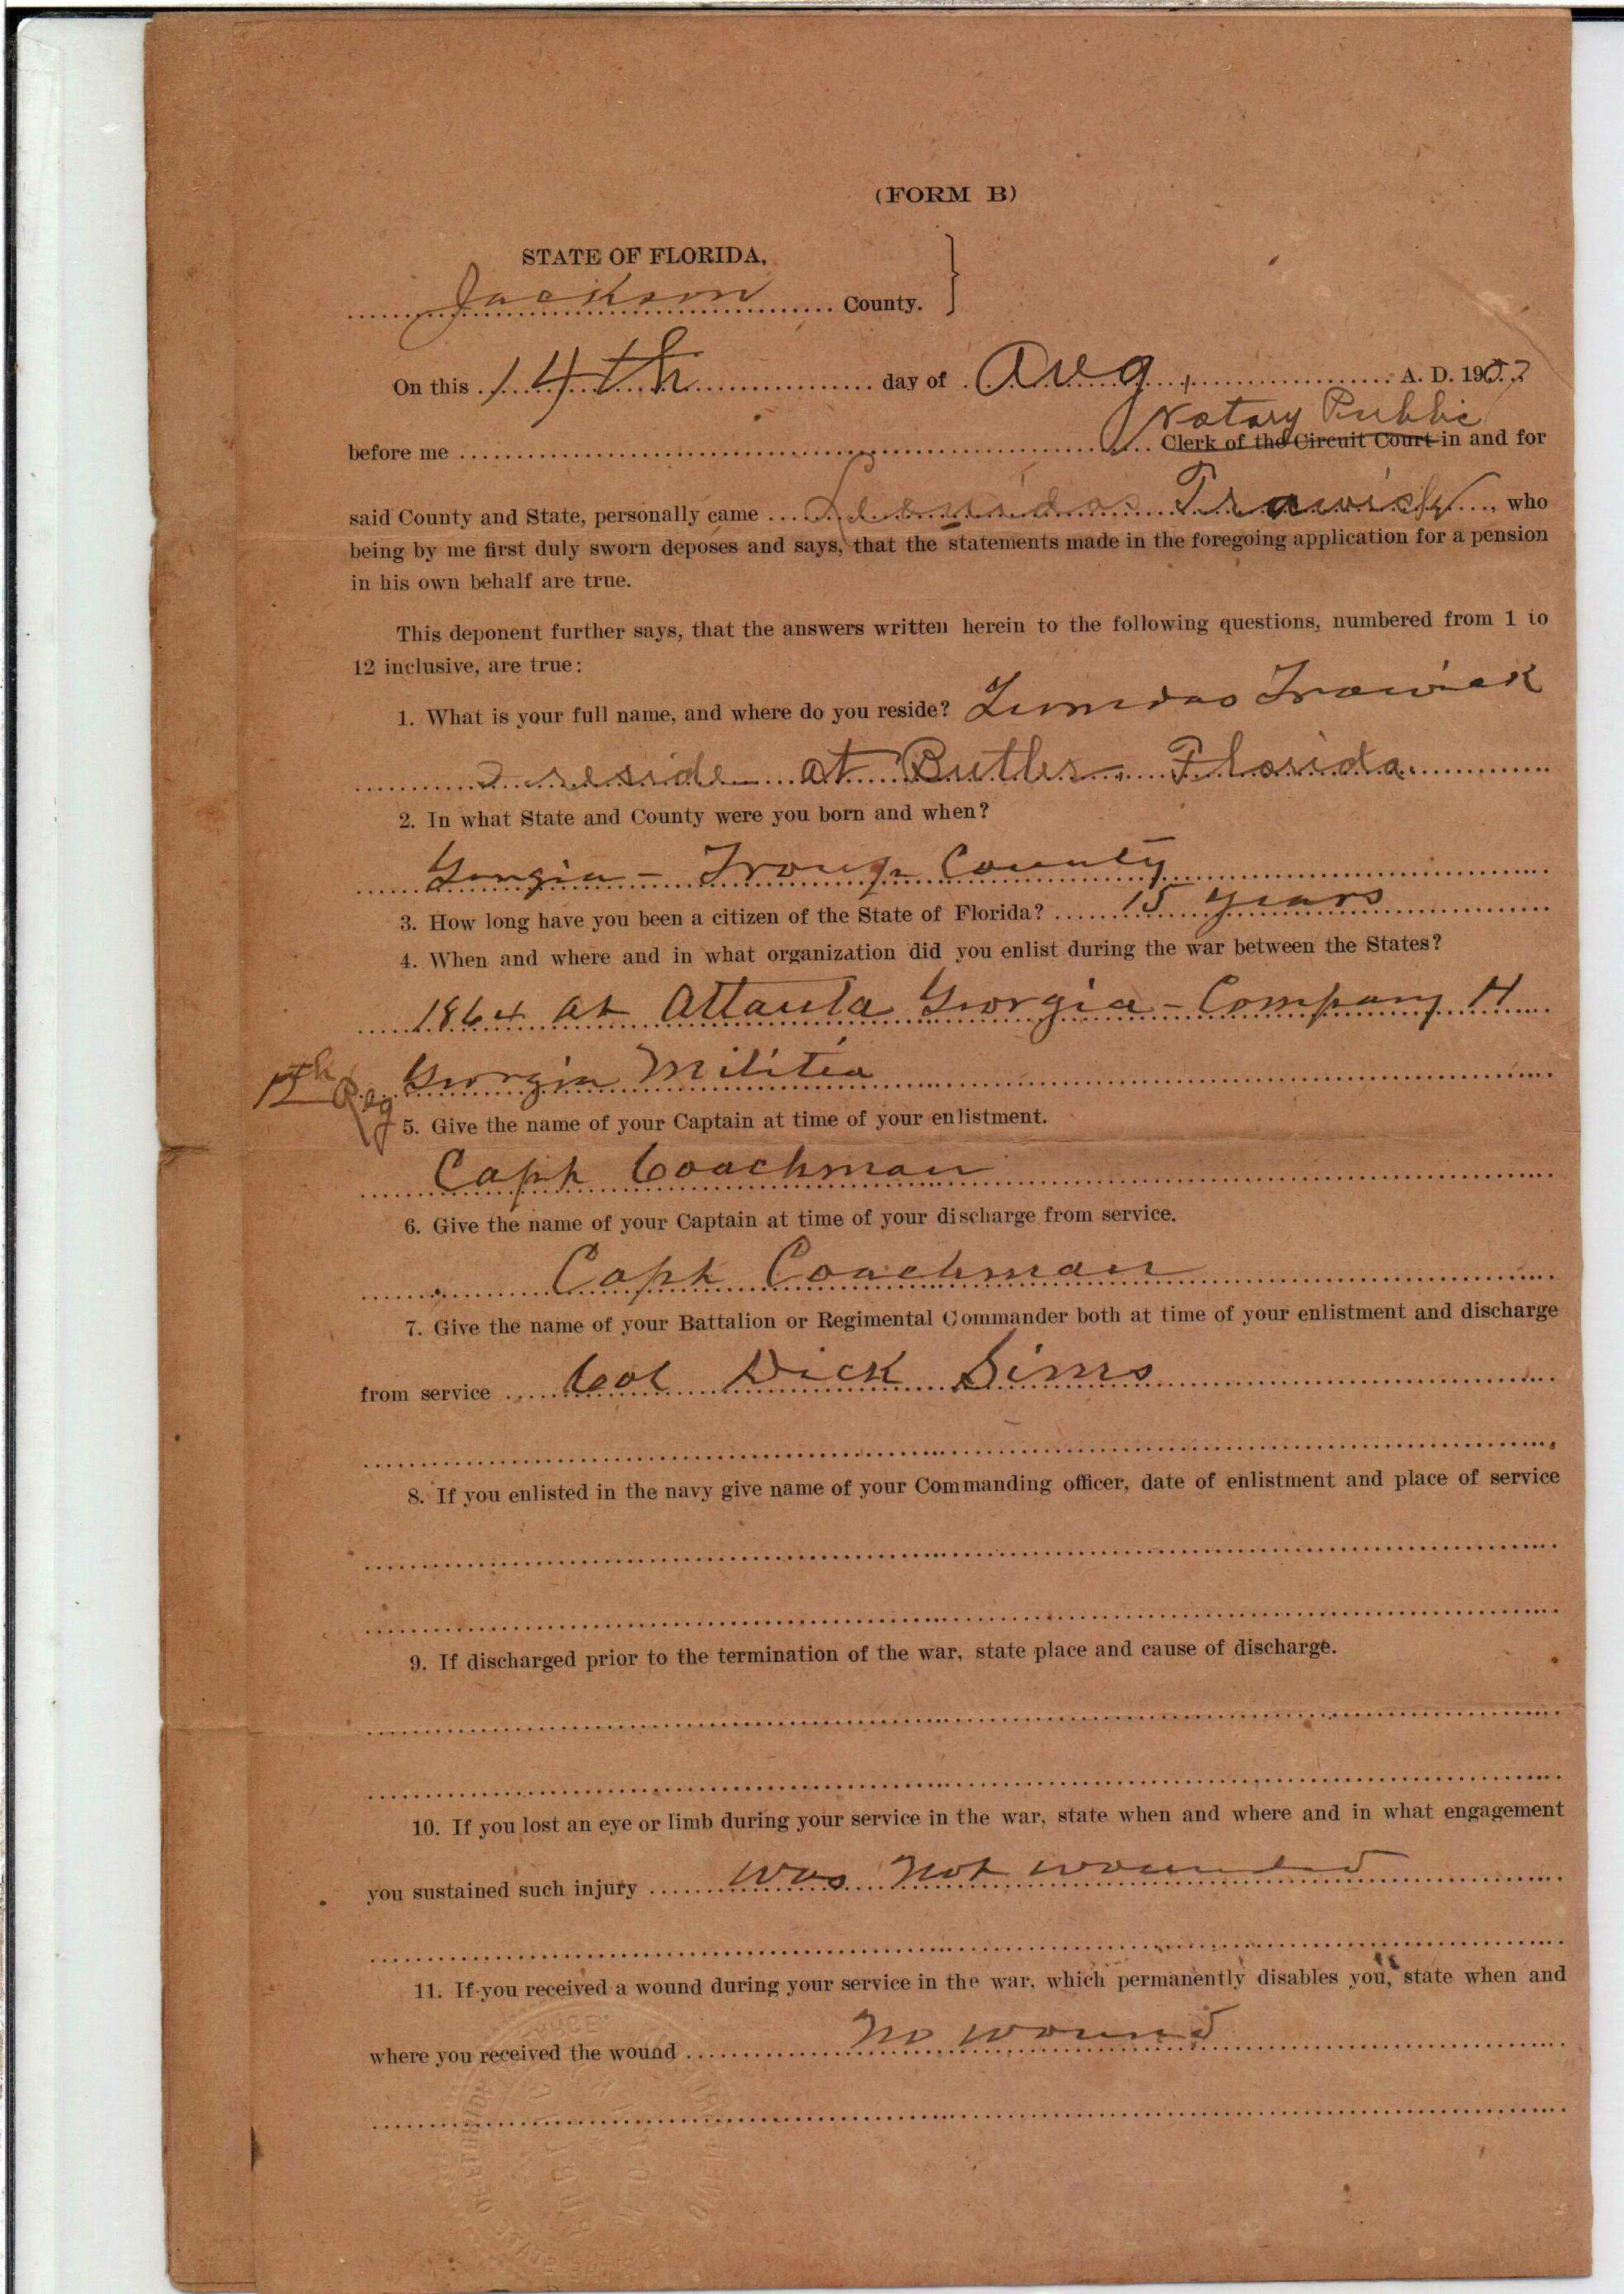 (FORM B)
STATE OF FLORIDA,
Jackson County.
On this 14th day of Aug, A. D. 1907
Notary Public
before me Clerk of the Circuit Court in and for
said County and State, personally came Leonidas Trawick, who
being by me first duly sworn deposes and says, that the statements made in the foregoing application for a pension
in his own behalf are true.
This deponent further says, that the answers written herein to the following questions, numbered from 1 to
12 inclusive, are true:
1. What is your full name, and where do you reside? Leonidas Trawick
I reside at Butler, Florida.
2. In what State and County were you born and when?
Georgia - Troup County
3. How long have you been a citizen of the State of Florida? 15 years
4. When and where and in what organization did you enlist during the war between the States?
1864 at Atlanta Georgia - Company H
Reg Georgia Militia
5. Give the name of your Captain at time of your enlistment.
Capt Coachman
6. Give the name of your Captain at time of your discharge from service.
Capt Coachman
7. Give the name of your Battalion or Regimental Commander both at time of your enlistment and discharge
from service Col Dick Sims
8. If you enlisted in the navy give name of your Commanding officer, date of enlistment and place of service
9. If discharged prior to the termination of the war, state place and cause of discharge.
10. If you lost an eye or limb during your service in the war, state when and where and in what engagement
you sustained such injury was not wounded
11. If you received a wound during your service in the war, which permanently disables you, state when and
where you received the wound no wound